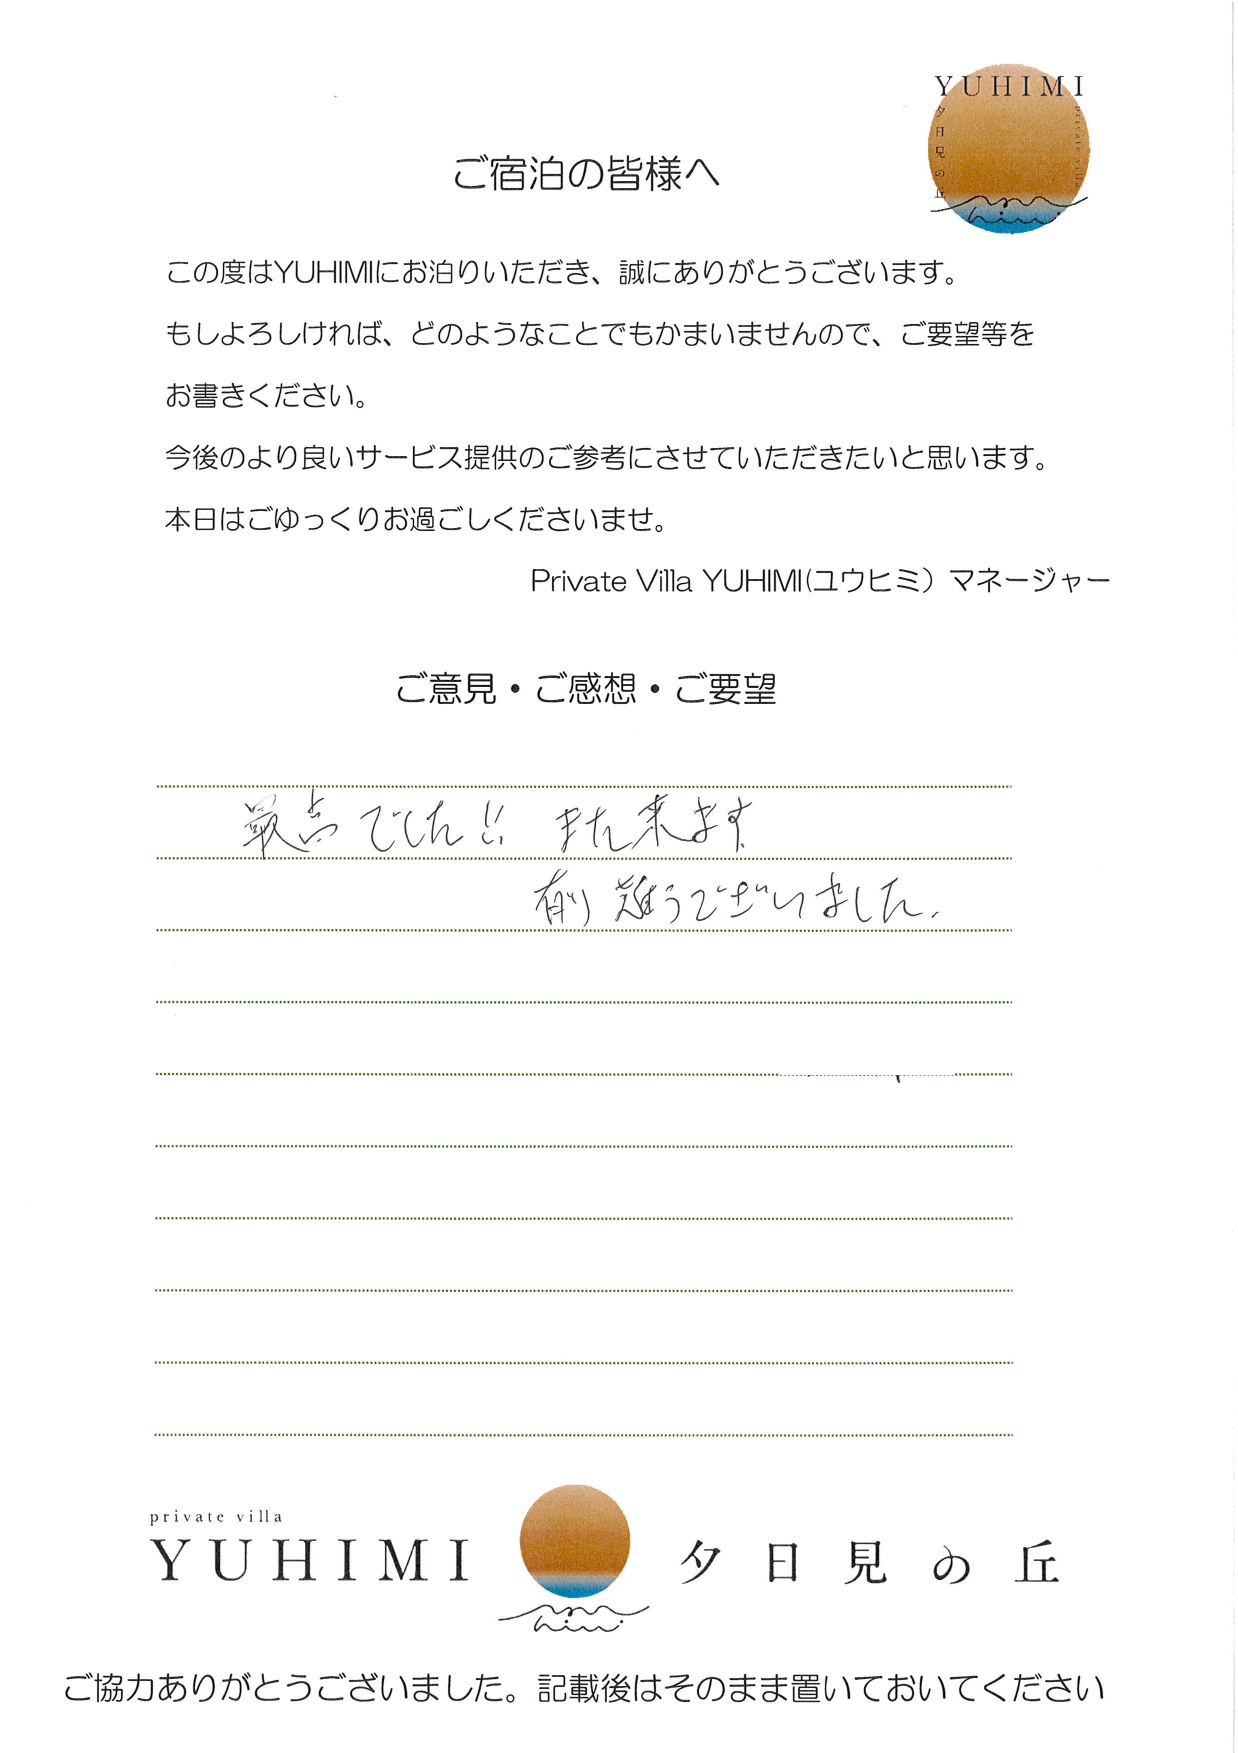 YUHIMI
夕日見の丘
private villa
ご宿泊の皆様へ
この度はYUHIMIにお泊りいただき、誠にありがとうございます。
もしよろしければ、どのようなことでもかまいませんので、ご要望等を
お書きください。
今後のより良いサービス提供のご参考にさせていただきたいと思います。
本日はごゆっくりお過ごしくださいませ。
Private Villa YUHIMI(ユウヒミ）マネージャー
ご意見・ご感想・ご要望
最高でした!! また来ます
有り難うございました.
private villa
YUHIMI 夕日見の丘
ご協力ありがとうございました。記載後はそのまま置いておいてください